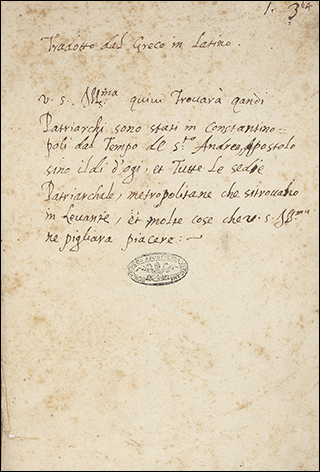 1. 3
Tradotto dal Greco in Latino.
v. s. Ill.ma quivi Trovarà qandi
Patriarchi sono stati in Constantino=
poli dal Tempo de s.to Andrea Apostolo
sino il di d'ogi, et Tutte le sedie
Patriarchale, metropolitane che si trovano
in Levante, et molte cose che v. s. Ill.ma
ne pigliara piacere: